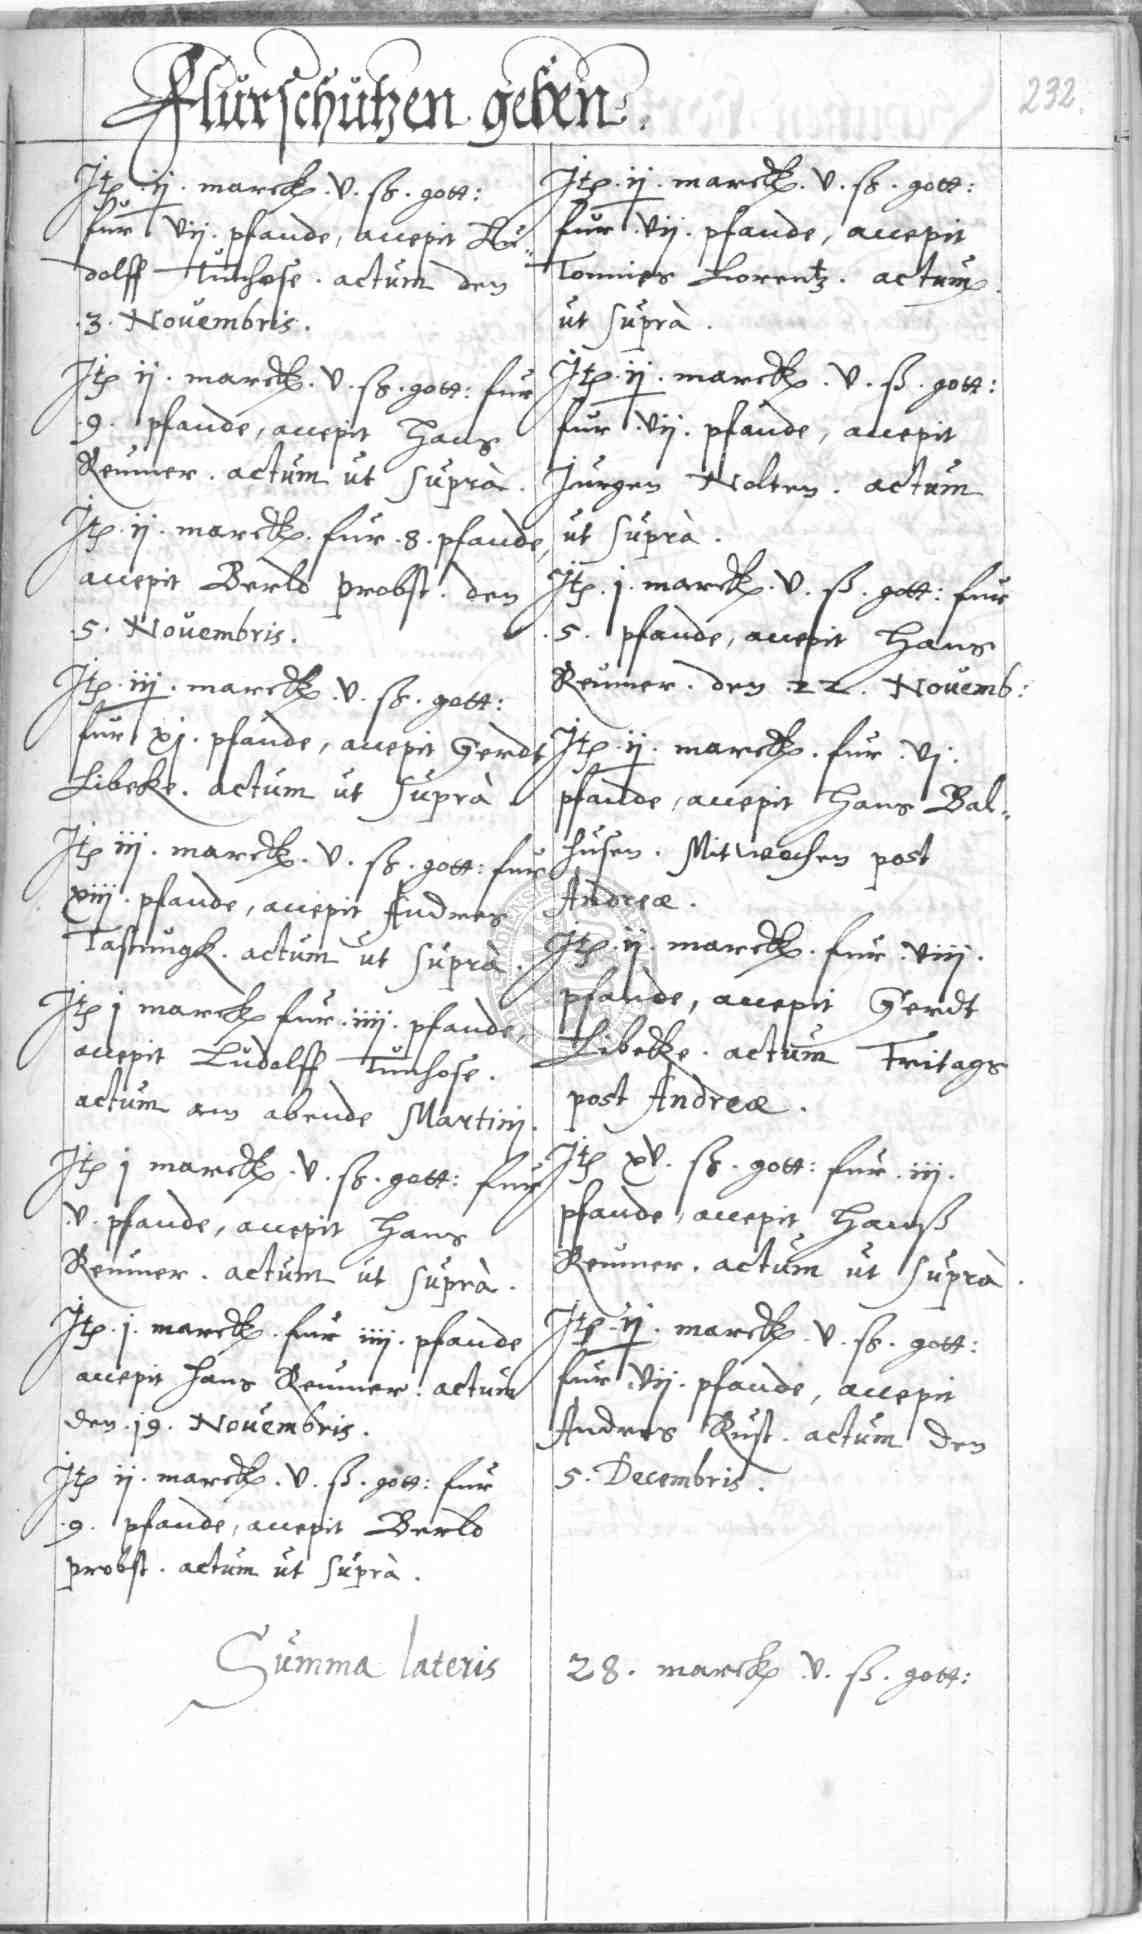 Flurschützen geben.
232.
Jtp .ij. marck. v. ß. gott:
für vij. pfande, accepit Lu-
dolff Tunhose. actum den
.3. Nouembris.
Jtp ij. marck. v. ß. gott: für
.9. pfande, accepit Hans
Reumer. actum ut suprà.
Jtp .ij. marck. für .8. pfande,
accepit Berld Probst. den
.5. Nouembris.
Jtp .iij. marck. v. ß. gott:
für xj. pfande, accepit Gerdt
Libeke. actum ut suprà
Jtp iij. marck. v. ß. gott: für
xiij. pfande, accepit Andres
Tastungk. actum ut suprà.
Jtp j marck für .iiij. pfande,
accepit Ludolff Tunhose.
actum am abende Martinj.
Jtp j marck .v. ß. gott: für
.v. pfande, accepit Hans
Reumer. actum ut suprà.
Jtp .j. marck. für iiij. pfande
accepit Hans Reumer. actum
den .19. Nouembris.
Jtp ij. marck. v. ß. gott: für
.9. pfande, accepit Berld
Probst. actum ut suprà.
Jtp .ij. marck. v. ß. gott:
für .vij. pfande, accepit
Tonnies Lorentz. actum.
ut suprà.
Jtp .ij. marck. v. ß. gott:
für .vij. pfande, accepit
Jurgen Nolten. actum
ut suprà.
Jtp .j. marck. v. ß. gott: für
.5. pfande, accepit Hans
Reumer. den 22. Nouemb:
Jtp .ij. marck. für .vj.
pfande, accepit Hans Bal-
husen. Mitwochen post
Andreæ.
Jtp .ij. marck. für .viij.
pfande, accepit Gerdt
Libecke. actum Fritags
post Andreæ.
Jtp xv. ß. gott: für .iij.
pfande, accepit Hanß
Reumer. actum ut suprà.
Jtp .ij. marck .v. ß. gott:
für .vij. pfande, accepit
Andres Rust. actum den
5. Decembris.
Summa lateris 28. marck .v. ß. gott: